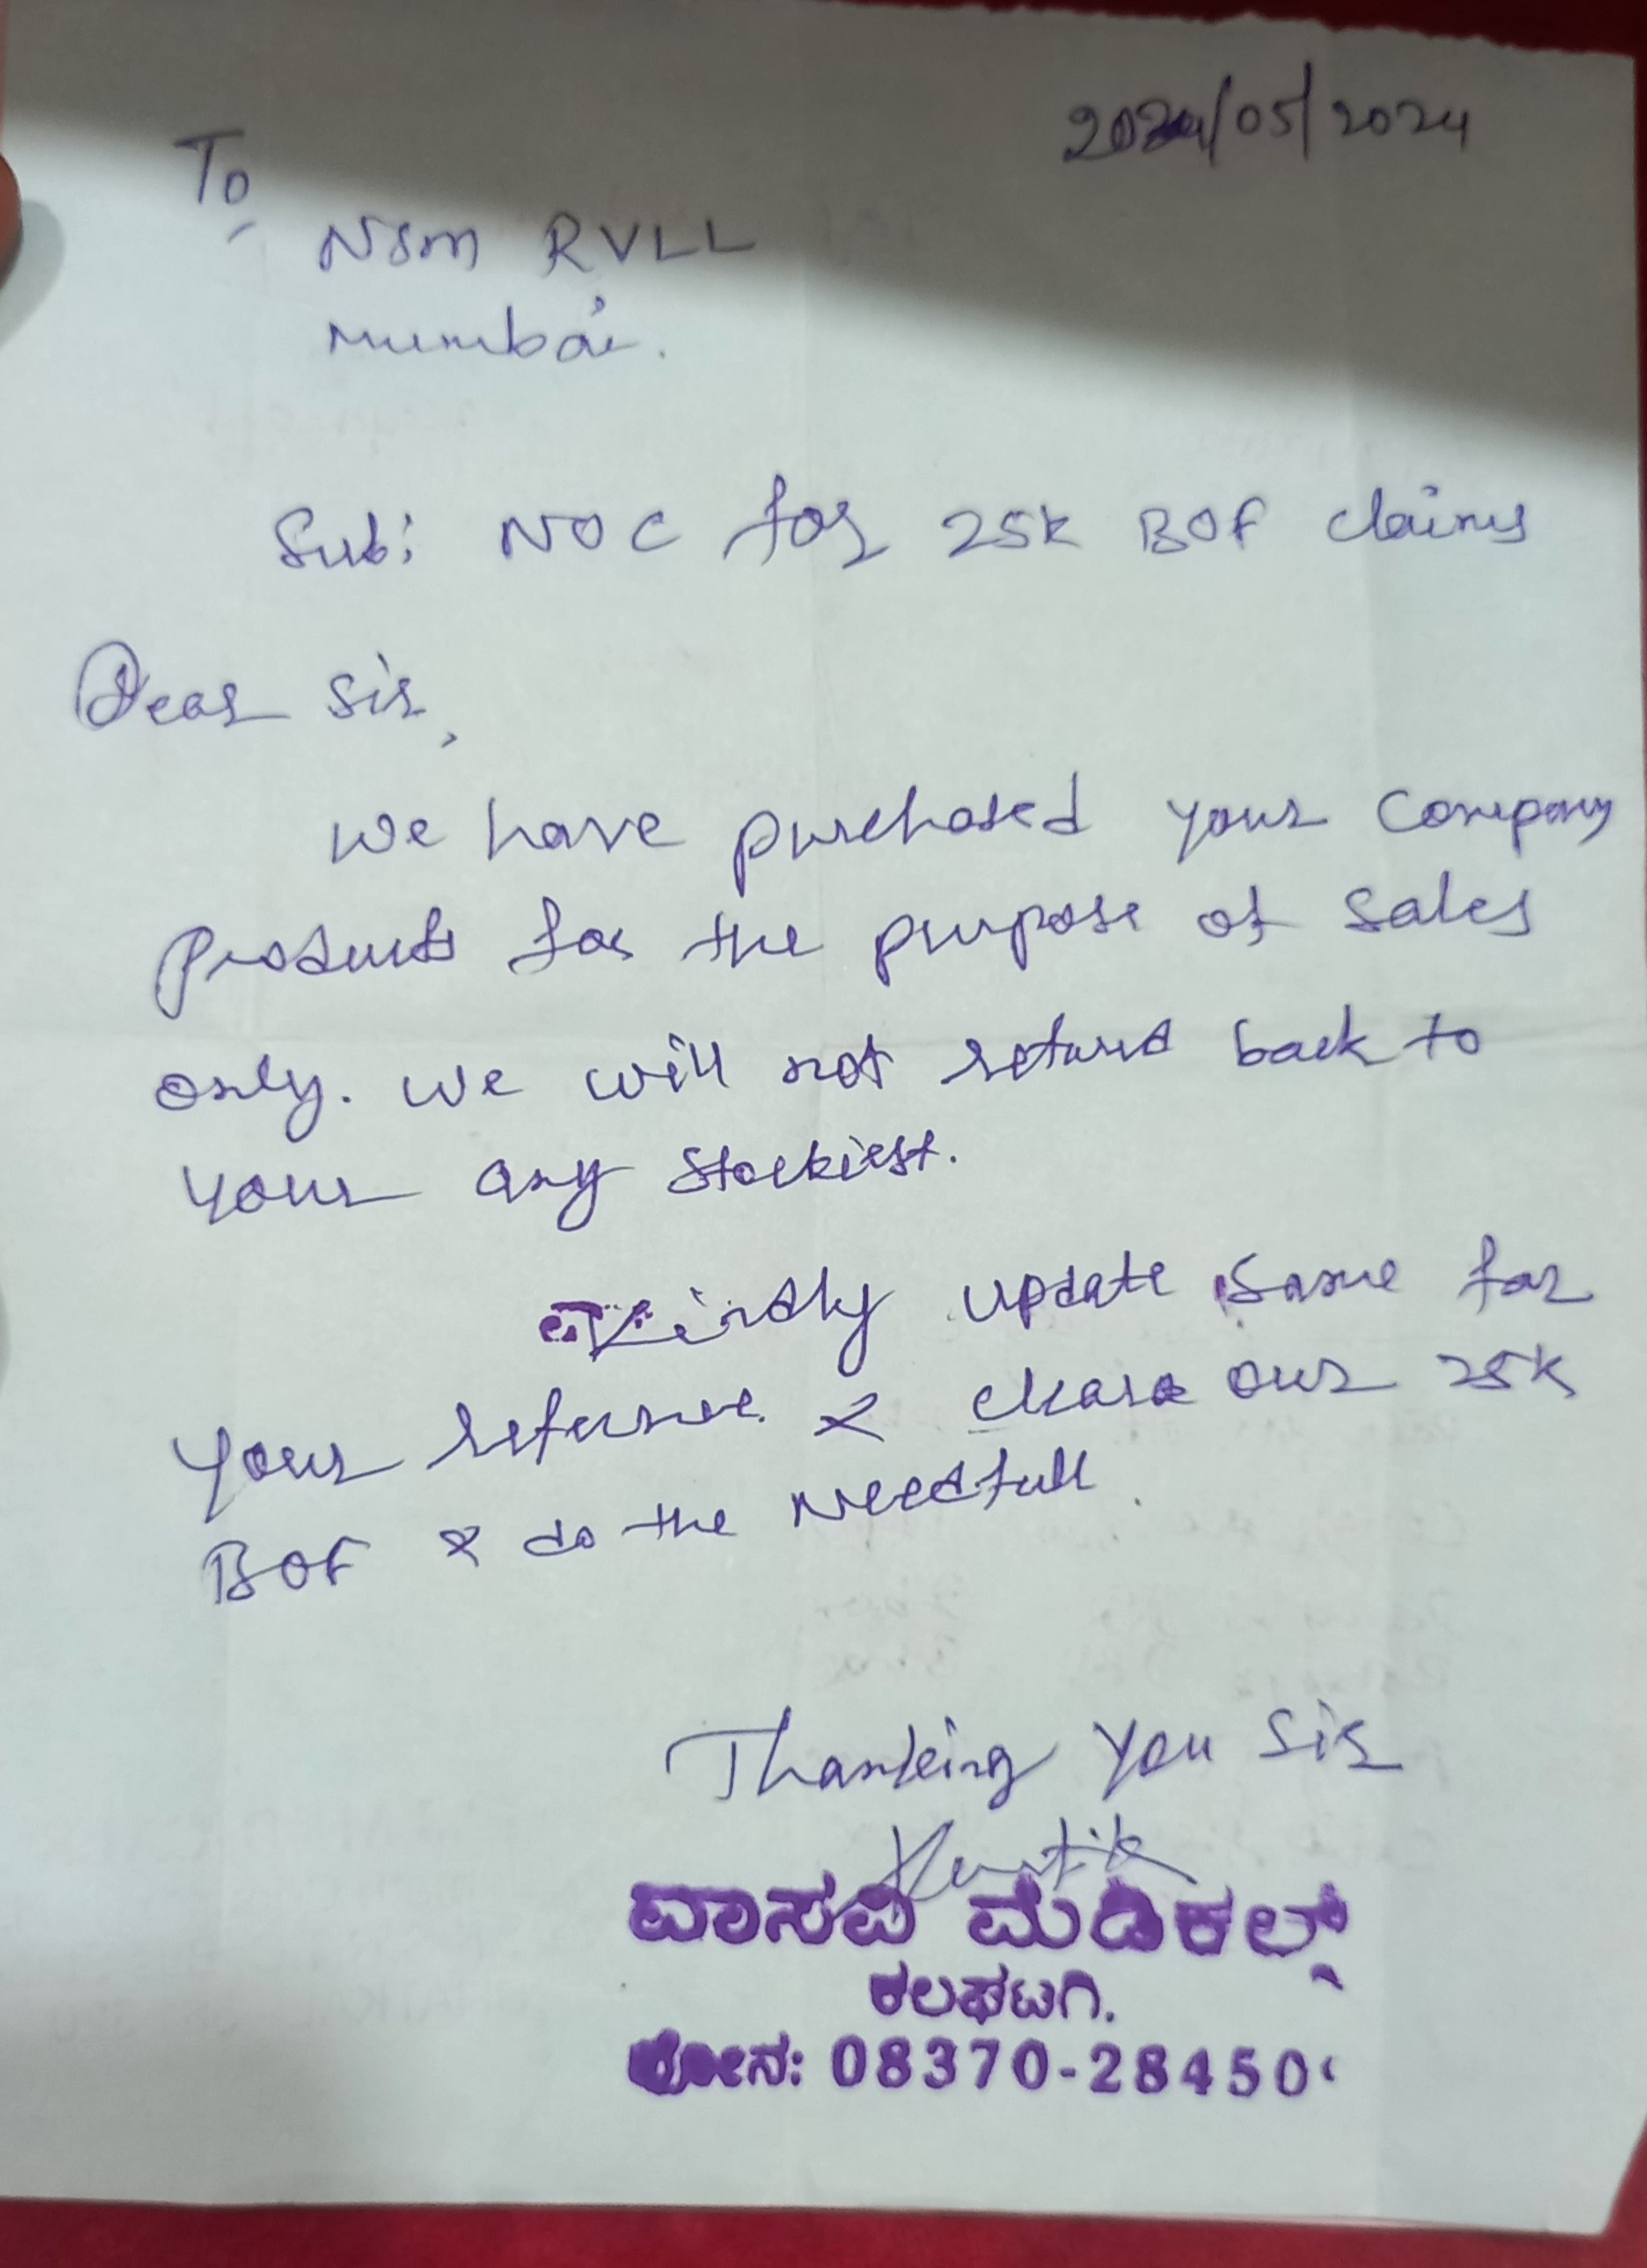 /05/2024
To
NSM RVLL
Mumbai.
Sub: NOC for 25K BOF claims
Dear Sir,
We have purchased your company
products for the purpose of sales
only. We will not return back to
your any stockiest.
Kindly update same for
your refernce & cleare our 25K
BOF & do the Needfull.
Thanking you Sir
ವಾಸವಿ ಮೆಡಿಕಲ್ಸ್
ಕಲಘಟಗಿ.
ಫೋನ: 08370-28450